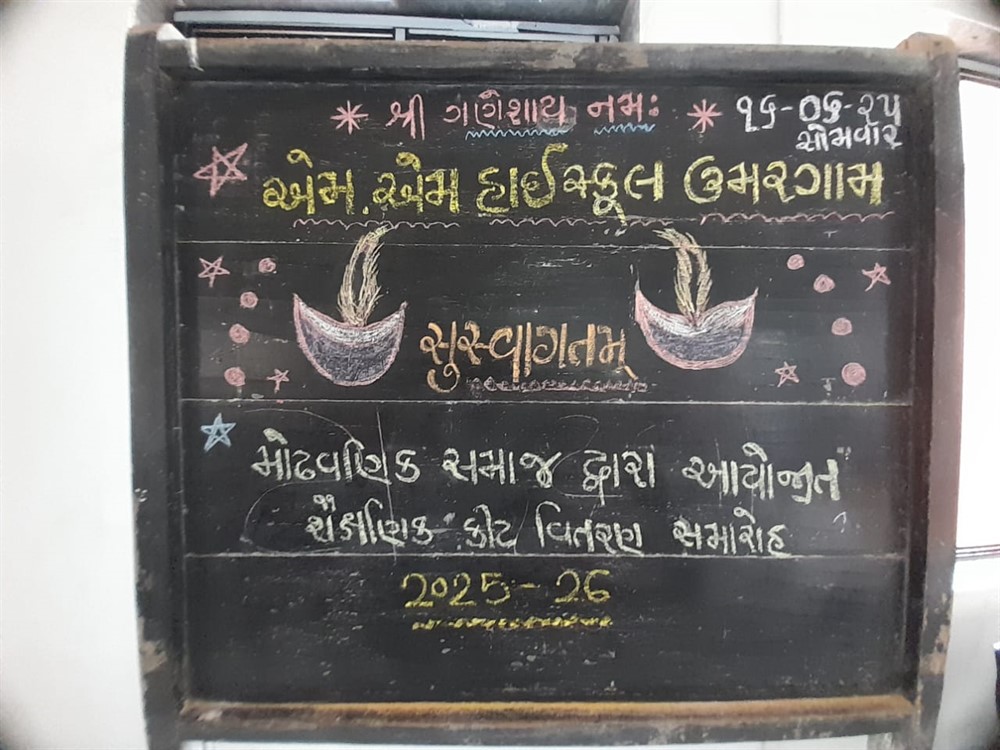 શ્રી ગણેશાય નમઃ ૧૬-૦૬-૨૫
સોમવાર
એમ.એમ હાઈસ્કૂલ ઉમરગામ
સુસ્વાગતમ્
મોઢવણિક સમાજ દ્વારા આયોજીત
શૈક્ષણિક કીટ વિતરણ સમારોહ
2025-26